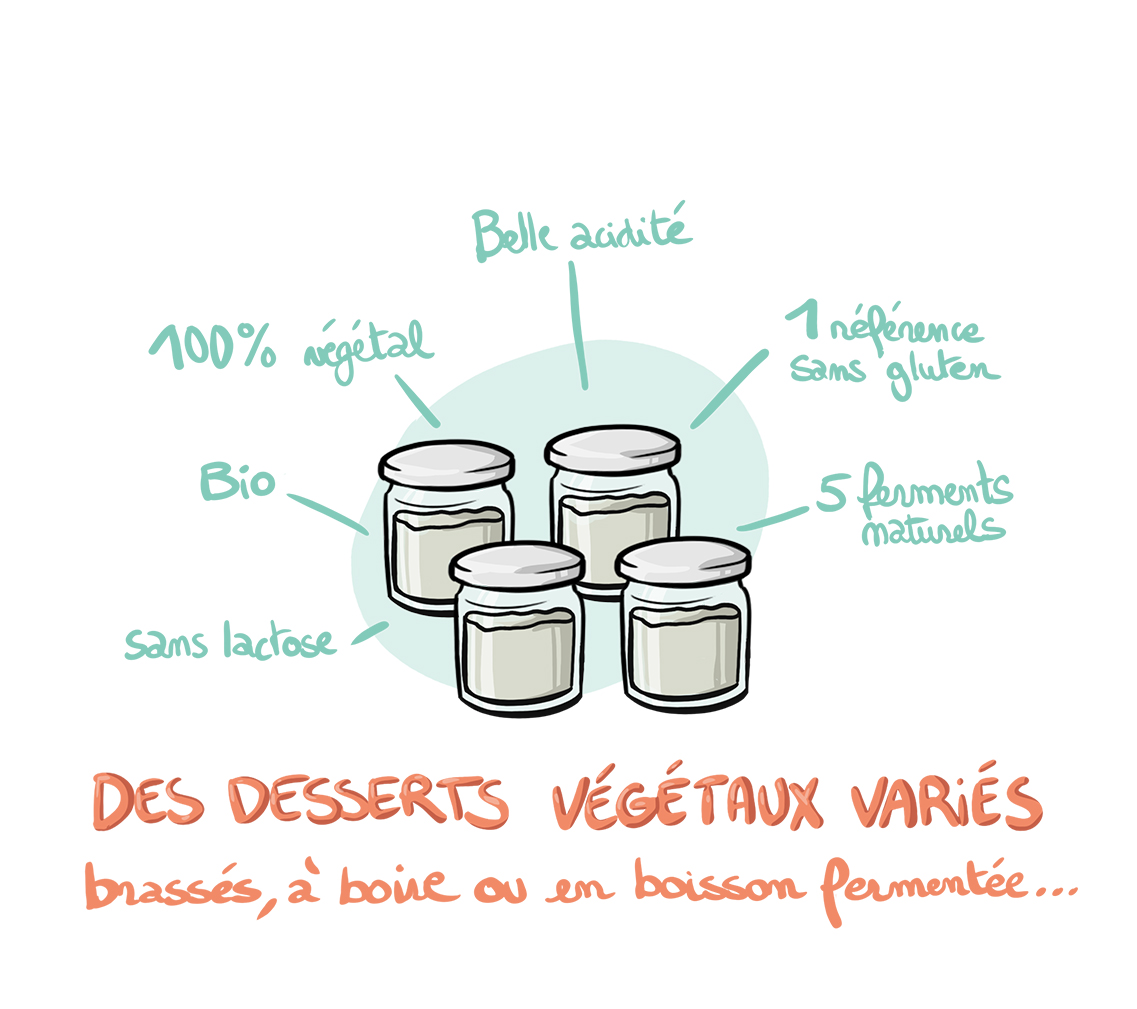 Belle acidité
100% végétal
1 référence
sans gluten
Bio
5 ferments
naturels
sans lactose
DES DESSERTS VÉGÉTAUX VARiÉS
brassés, à boire ou en boisson fermentée...